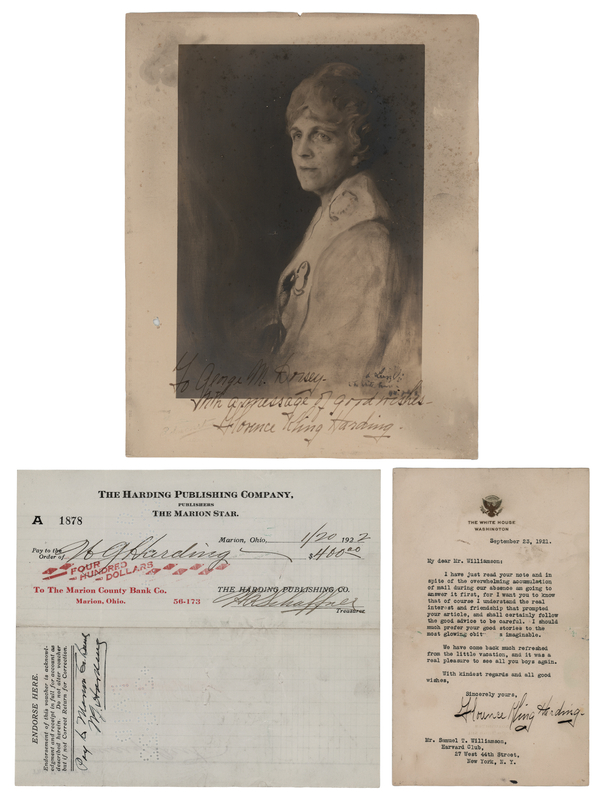 To George M. Dorsey.
With a message of good wishes -
Florence Kling Harding.
THE HARDING PUBLISHING COMPANY,
PUBLISHERS
THE MARION STAR.
A 1878
Marion, Ohio, 1/20 1922
Pay to the
Order of W G Harding $400.00
FOUR
HUNDRED
DOLLARS
To The Marion County Bank Co.
Marion, Ohio. 56-173
THE HARDING PUBLISHING CO.
Treasurer
ENDORSE HERE.
Endorsement of this voucher is acknowl-
edgment and receipt in full for account as
described herein. Do not alter voucher
but if not Correct Return for Correction.
Pay to Marion Co Bank
W G Harding
THE WHITE HOUSE
WASHINGTON
September 23, 1921.
My dear Mr. Williamson:
I have just read your note and in
spite of the overwhelming accumulation
of mail during our absence am going to
answer it first, for I want you to know
that of course I understand the real
interest and friendship that prompted
your article, and shall certainly follow
the good advice to be careful. I should
much prefer your good stories to the
most glowing obit s imaginable.
We have come back much refreshed
from the little vacation, and it was a
real pleasure to see all you boys again.
With kindest regards and all good
wishes,
Sincerely yours,
Florence Kling Harding-
Mr. Samuel T. Williamson,
Harvard Club,
27 West 44th Street,
New York, N. Y.